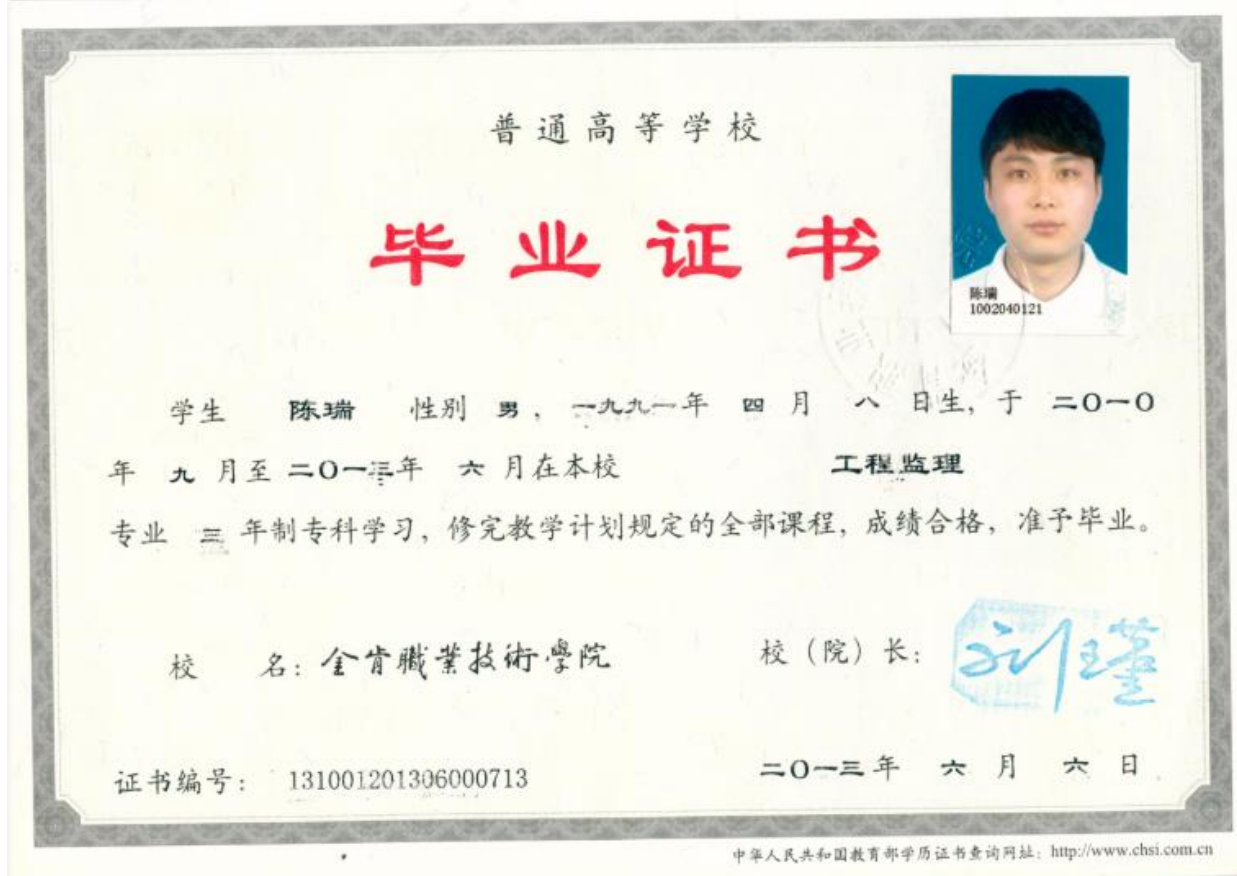 普通高等学校
毕业证书
陈瑞
1002040121
学生 陈瑞 性别 男，一九九一年 四 月 八 日生，于 二〇一〇
年 九 月至 二〇一三年 六 月在本校 工程监理
专业 三 年制专科学习，修完教学计划规定的全部课程，成绩合格，准予毕业。
校 名：金肯職業技術學院 校（院）长：
证书编号： 131001201306000713 二〇一三年 六 月 六 日
中华人民共和国教育部学历证书查询网址：http://www.chsi.com.cn